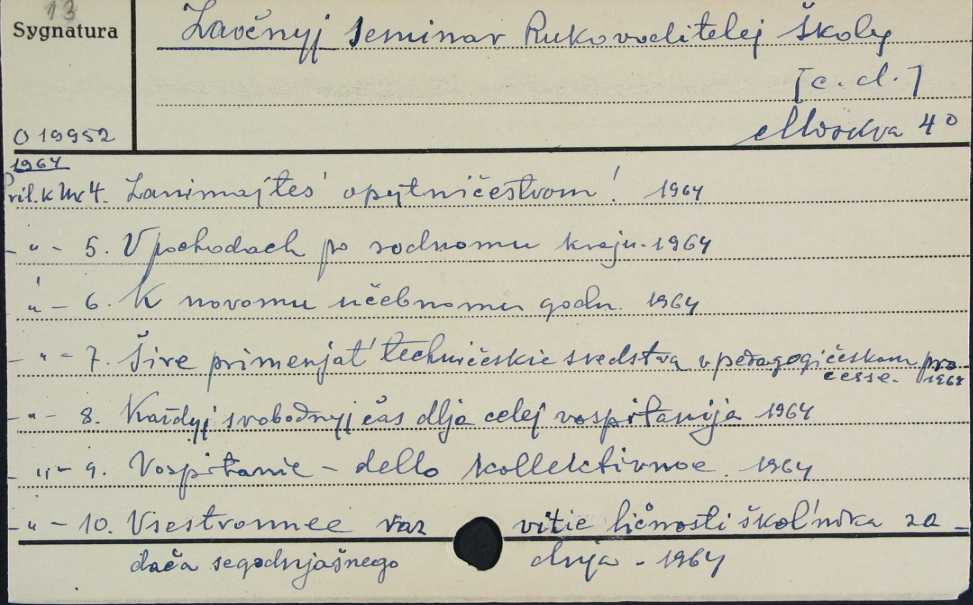 13
Sygnatura
Zaočnyj seminar Rukovoditelej školy
[c. d. ]
O 19952
Moskva 4°
1964
Pril. k Nr 4. Zanimajtes' opytničestvom! 1964
- " - 5. V pochodach po rodnomu kraju. 1964
" - 6. K novomu učebnomu godu. 1964
- " - 7. Šire primenjat' techničeskie sredstva v pedagogičeskom pro-
cesse. 1964
- " - 8. Každyj svobodnyj čas dlja celej vospitanija 1964
" - 9. Vospitanie - dello kollektivnoe. 1964
- " - 10. Vsestronnee raz vitie ličnosti škol'nika za-
dača segodnjašnego dnja - 1964